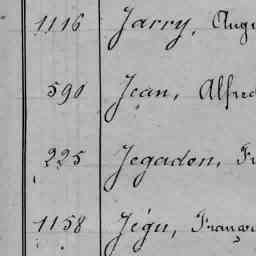 1116 Jarry, Augu
590 Jean, Alfred
225 Jegadon, Fr
1158 Jégu, Françoi